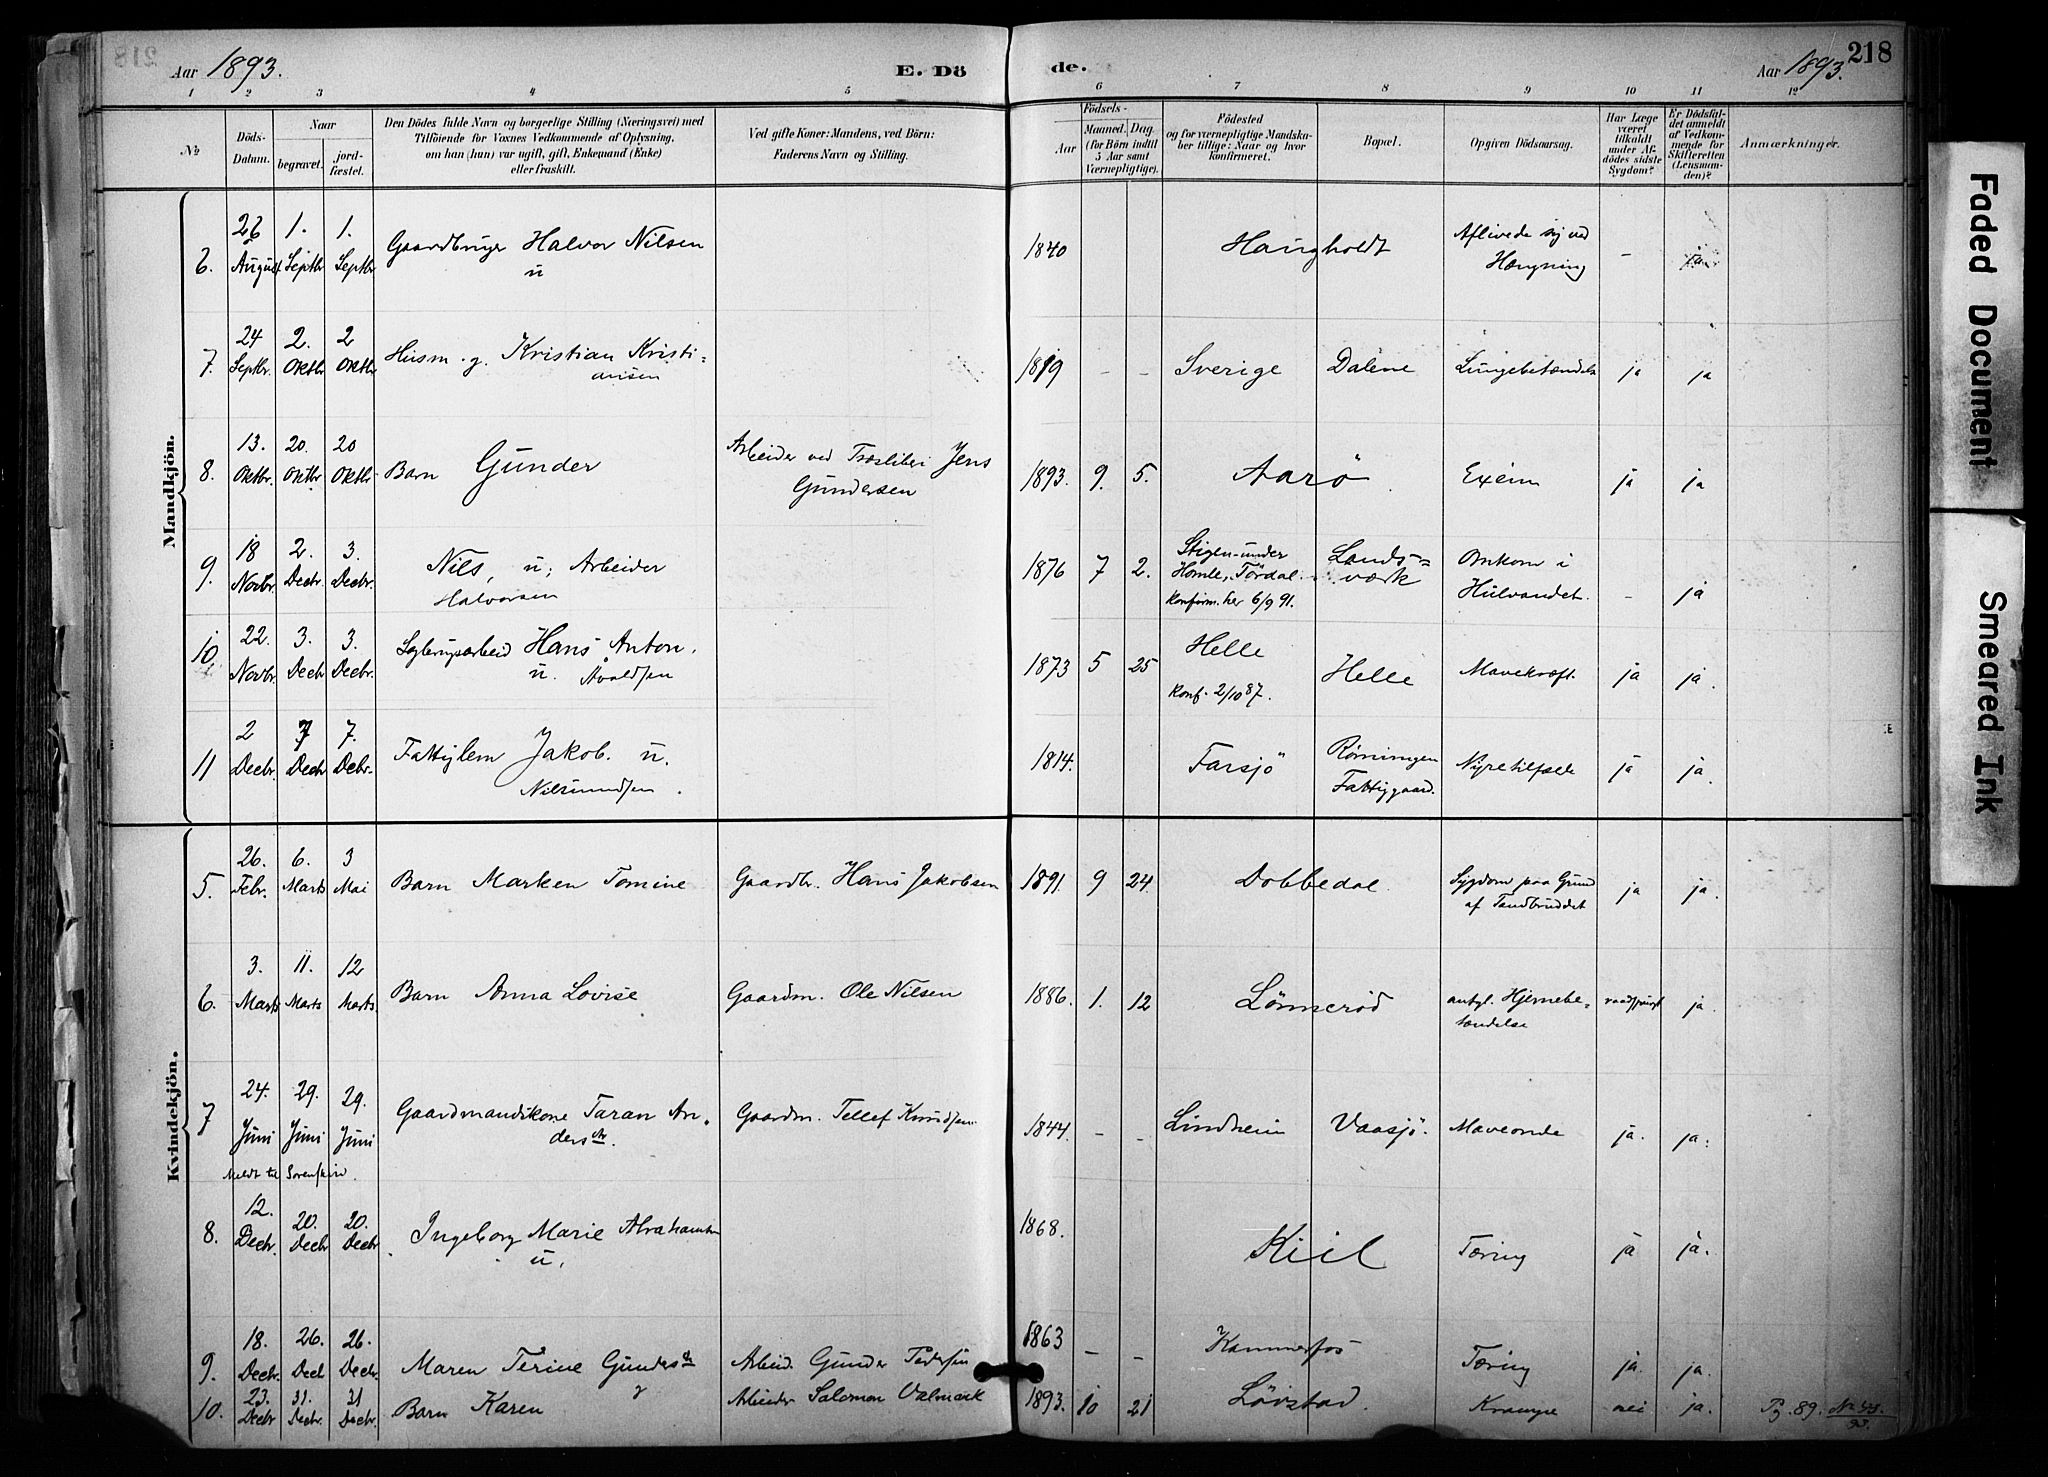 Aar 1893. E. Dö de. Aar 1893. 218
1 2 3 4 5 6 7 8 9 10 11 12
No
Döds-Datum.
Naar
begravet.
jord-fæstet.
Den Dödes fulde Navn og borgerlige Stilling (Næringsvei) med
Tilföiende for Voxnes Vedkommende af Oplysning,
om han (hun) var ugift, gift, Enkemand (Enke)
eller fraskilt.
Ved gifte Koner: Mandens, ved Börn:
Faderens Navn og Stilling.
Födsels-
Aar
Maaned. Dag
(for Börn indtil
5 Aar samt
Værnepligtige).
Födested
og for værnepligtige Mandska-
ber tillige: Naar og hvor
konfirmeret.
Bopæl.
Opgiven Dödsaarsag.
Har Læge
været
tilkaldt
under Af-
dödes sidste
Sygdom?
Er Dödsfal-
det anmeldt
af Vedkom-
mende for
Skifteretten
(Lensman-
den)?
Anmærkninger.
Mandkjön.
6. 26 August 1. Septbr 1. Septbr Gaardbruger Halvor Nilsen u 1840 Haugholdt Aflivede sig ved Hængning - ja
7. 24 Septbr. 2. Oktbr 2 Oktbr Husm. g. Kristian Kristi=
ansen 1819 - - Sverige Dalene Lungebetændelse ja ja
8. 13. Oktbr. 20. Oktbr 20 Oktbr Barn Gunder Arbeider ved Træsliberi Jens
Gundersen 1893. 9. 5. Aarö Exem ja ja
9. 18 Novbr. 2. Decbr. 3. Decbr. Nils, u; Arbeider
Halvorsen 1876 7 2. Stigen under
Homle, Tördal.
Konfirm. her 6/9 91. Lands=
værk Omkom i
Hulvandet. - ja
10. 22. Novbr. 3. Decbr 3. Decbr. Hans Anton.
u. Avaldsen 1873 5 25 Helle
Konf. 2/10 87. Helle Mavekræft. ja ja.
11 2 Decbr. 7 Decbr 7. Debr. Fattiglem Jakob. u.
Nilsmundsen. 1814. Farsjö Rönningen
Fattiggaard. Nyretilfælde ja ja.
Kvindekjön.
5. 26. Febr. 6. Marts 3 Mai Barn Marken Tomine Gaardbr. Hans Jakobsen 1891. 9 24. Dobbedal. Sygdom paa Grund
af Tandbruddet ja ja.
6. 3. Marts 11. Marts 12 Marts. Barn Anna Lovise Gaardm. Ole Nilsen 1886. 1. 12 Lönneröd antgl. Hjernebe-
tændelse raadspurgt ja.
7 24. Juni 29. Juni 29. Juni Gaardmandskone Taran An-
dersdtr. Gaardm. Tellef Knudsen. 1844. - - Lindheim Vaasjö. Maveonde ja. ja.
Meldt til Sorenskriv.
8. 12. Decbr. 20. Decbr 20. Decbr Ingeborg Marie Abrahamsen
u. 1868. Kiil Tæring ja ja.
9. 18. Decbr. 26. Decb 26. Decbr. Maren Terine Gundersdtr
g Arbeid. Gunder Pedersen 1863 - - Kammerfos Tæring ja. ja.
10. 23. Decbr 31. Decbr. 31 Decbr. Barn Karen Arbeider Salomon Valmark 1893. 10 21 Lövstad. Krampe nei ja. Pg. 89. No 45. 93.
Faded Document
Smeared Ink